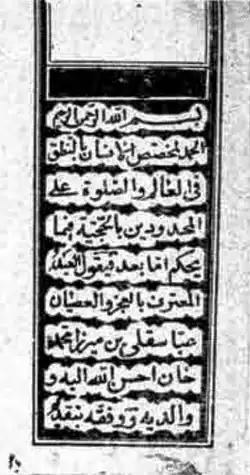 بسم الله الرحمن الرحيم
الحمد لمخصص الانسان بالنطق
فى المقال والصلوة على
المحدودين بالتحية فيما
يحكم اما بعد فيقول العبد
المعترف بالعجز والعصيان
عباسقلى بن ميرزا محمد
خان احسن الله اليه و
والديه ووفقه بنقد